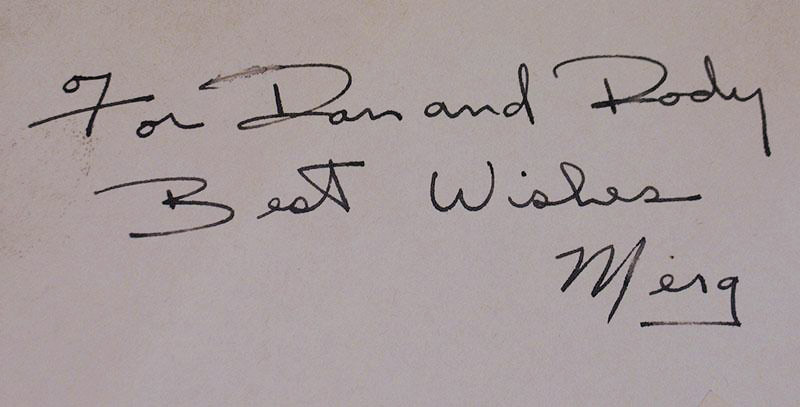 For Dan and Rody
Best Wishes
Merg